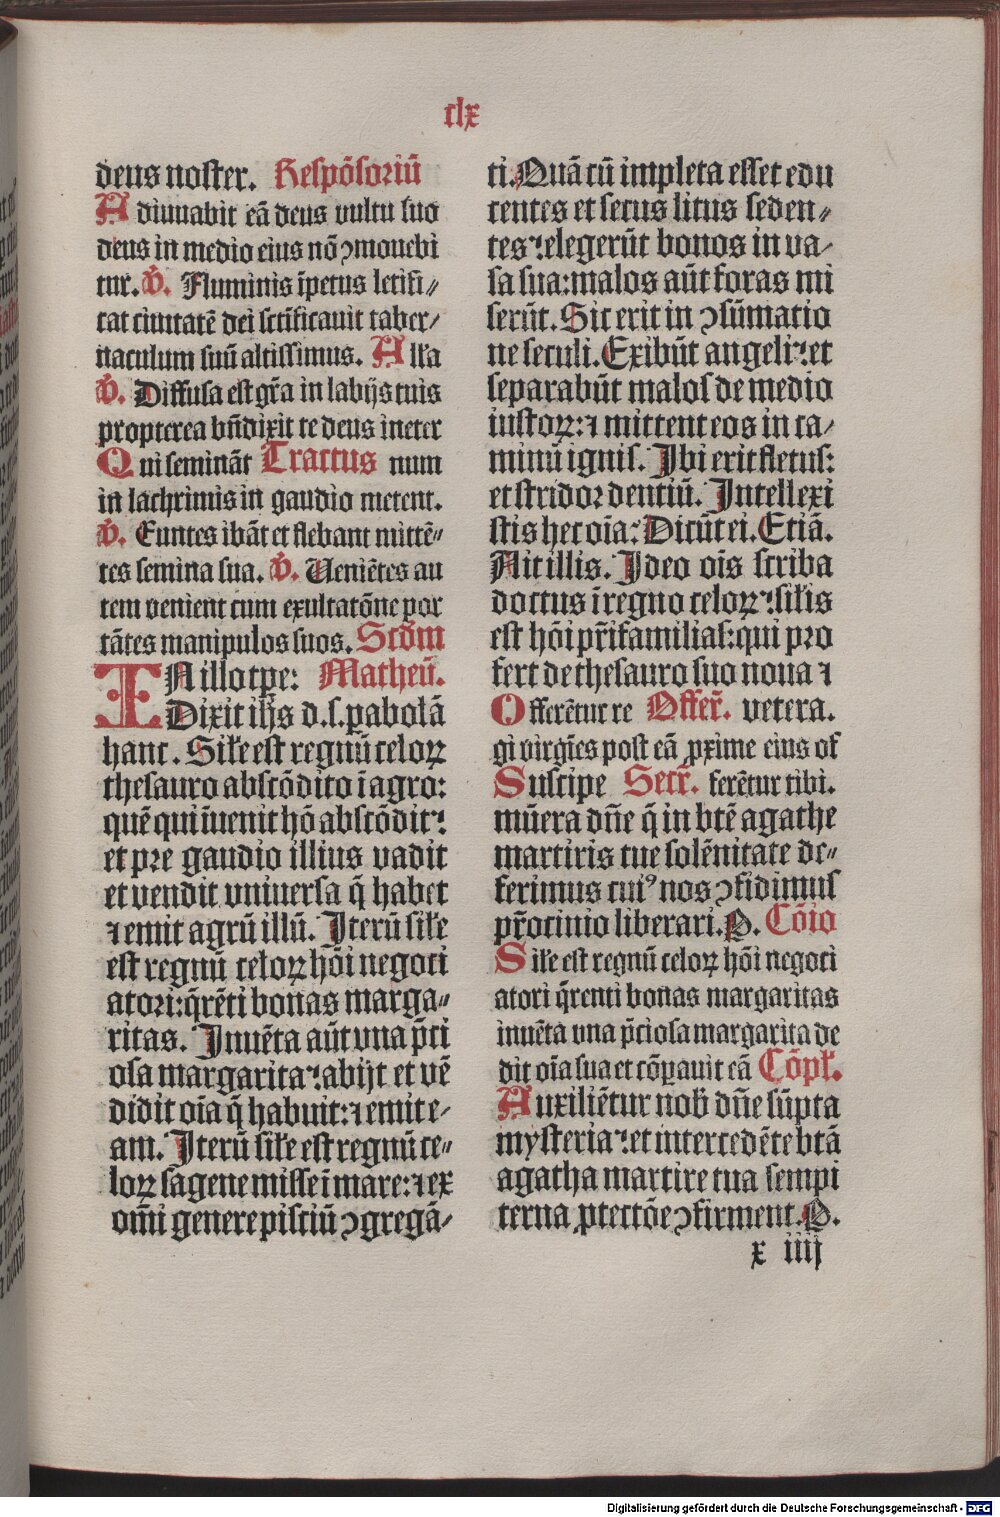 clx
deus noster. Respōsoriū
Adiuuabit eā deus vultu suo
deus in medio eius nō ꝯmouebi
tur. ℣. Fluminis īpetus letifi⸗
cat ciuitatē dei sctificauit taber⸗
naculum suū altissimus. Alla
℣. Diffusa est gr̄a in labijs tuis
propterea bn̄dixit te deus ineter
Qui semināt Tractus num
in lachrimis in gaudio metent.
℣. Euntes ibāt et flebant mittē⸗
tes semina sua. ℣. Ueniētes au
tem venient cum exultatōne por
tātes manipulos suos. Scd̄m
IN illo tpe: Matheū.
Dixit ih̄s d. s. pabolā
hanc. Sil̄e est regnū celoꝝ
thesauro abscōdito ī agro:
quē qui īuenit hō abscōdit:
et pre gaudio illius vadit
et vendit vniuersa q̄ habet
⁊ emit agrū illū. Iterū sil̄e
est regnū celoꝝ hōi negoci
atori: q̄rēti bonas marga⸗
ritas. Inuēta aūt vna p̄ci
osa margarita: abijt et vē
didit oīa q̄ habuit: ⁊ emit e⸗
am. Iterū sil̄e est regnū ce⸗
loꝝ sagene misse ī mare: ⁊ ex
om̄i genere pisciū ꝯgregā⸗
ti. Quā cū impleta esset edu
centes et secus litus seden⸗
tes: elegerūt bonos in va⸗
sa sua: malos aūt foras mi
serūt. Sic erit in ꝯsūmatio
ne seculi. Exibūt angeli: et
separabūt malos de medio
iustoꝝ: ⁊ mittent eos in ca⸗
minū ignis. Ibi erit fletus:
et stridor dentiū. Intellexi
stis hec oīa: Dicūt ei. Etiā.
Ait illis. Ideo oīs scriba
doctus ī regno celoꝝ: sil̄is
est hōi pr̄ifamilias: qui pro
fert de thesauro suo noua ⁊
Offerētur re Offer̄. vetera.
gi virgīes post eā ꝓxime eius of
Suscipe Secr̄. ferētur tibi.
mūera dn̄e q̄ in btē agathe
martiris tue solēnitate de⸗
ferimus cuiꝰ nos ꝯfidimus
pr̄ocinio liberari. P. Cōio
Sil̄e est regnū celoꝝ hōi negoci
atori q̄renti bonas margaritas
inuēta vna p̄ciosa margarita de
dit oīa sua et cōꝑauit eā Cōpl̄.
Auxiliētur nob̄ dn̄e sūpta
mysteria: et intercedēte btā
agatha martire tua sempi
terna ꝓtectōe ꝯfirment. P.
x iiij
Digitalisierung gefördert durch die Deutsche Forschungsgemeinschaft - DFG